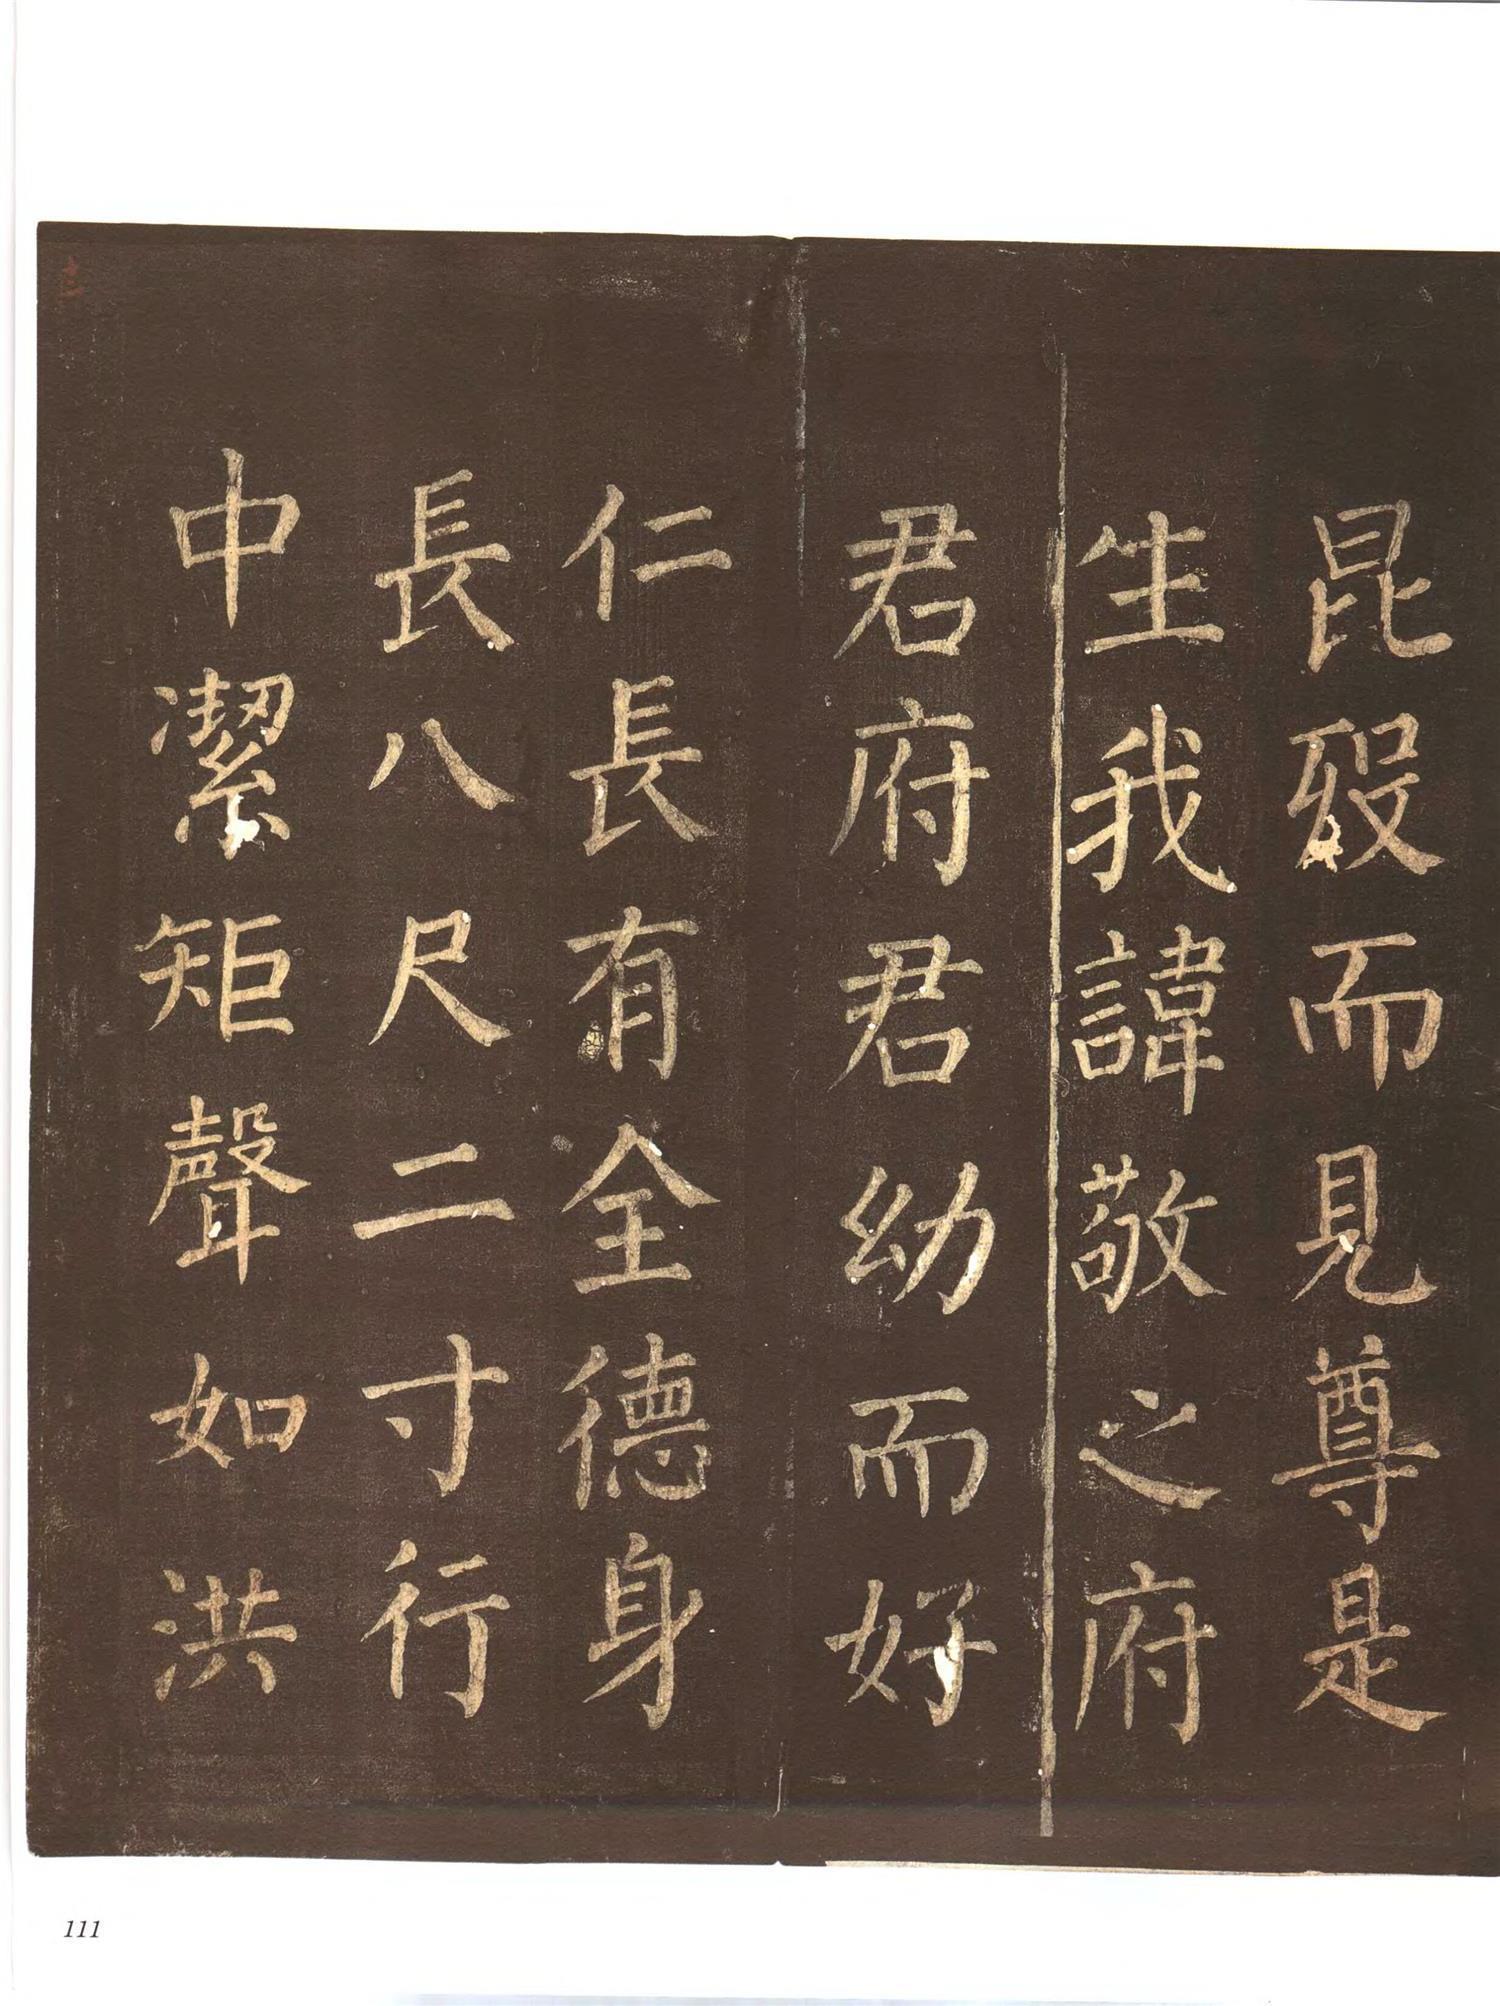 昆毀而見尊是
生我諱敬之府
君府君幼而好
仁長有全德身
長八尺二寸行
中潔矩聲如洪
111